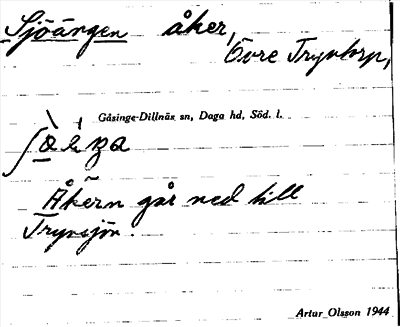 Sjöängen åker,
Övre Tryntorp,
Gåsinge-Dillnäs sn, Daga hd, Söd. l.
Åkern går ned till
Trynsjön.
Artur Olsson 1944